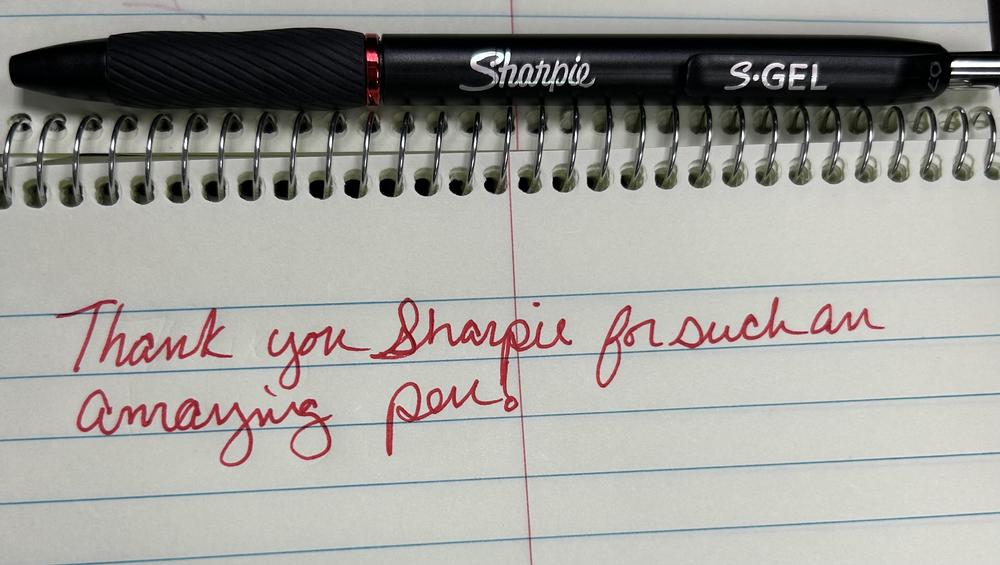 Sharpie S·GEL 0.7
Thank you Sharpie for such an
amazing pen!